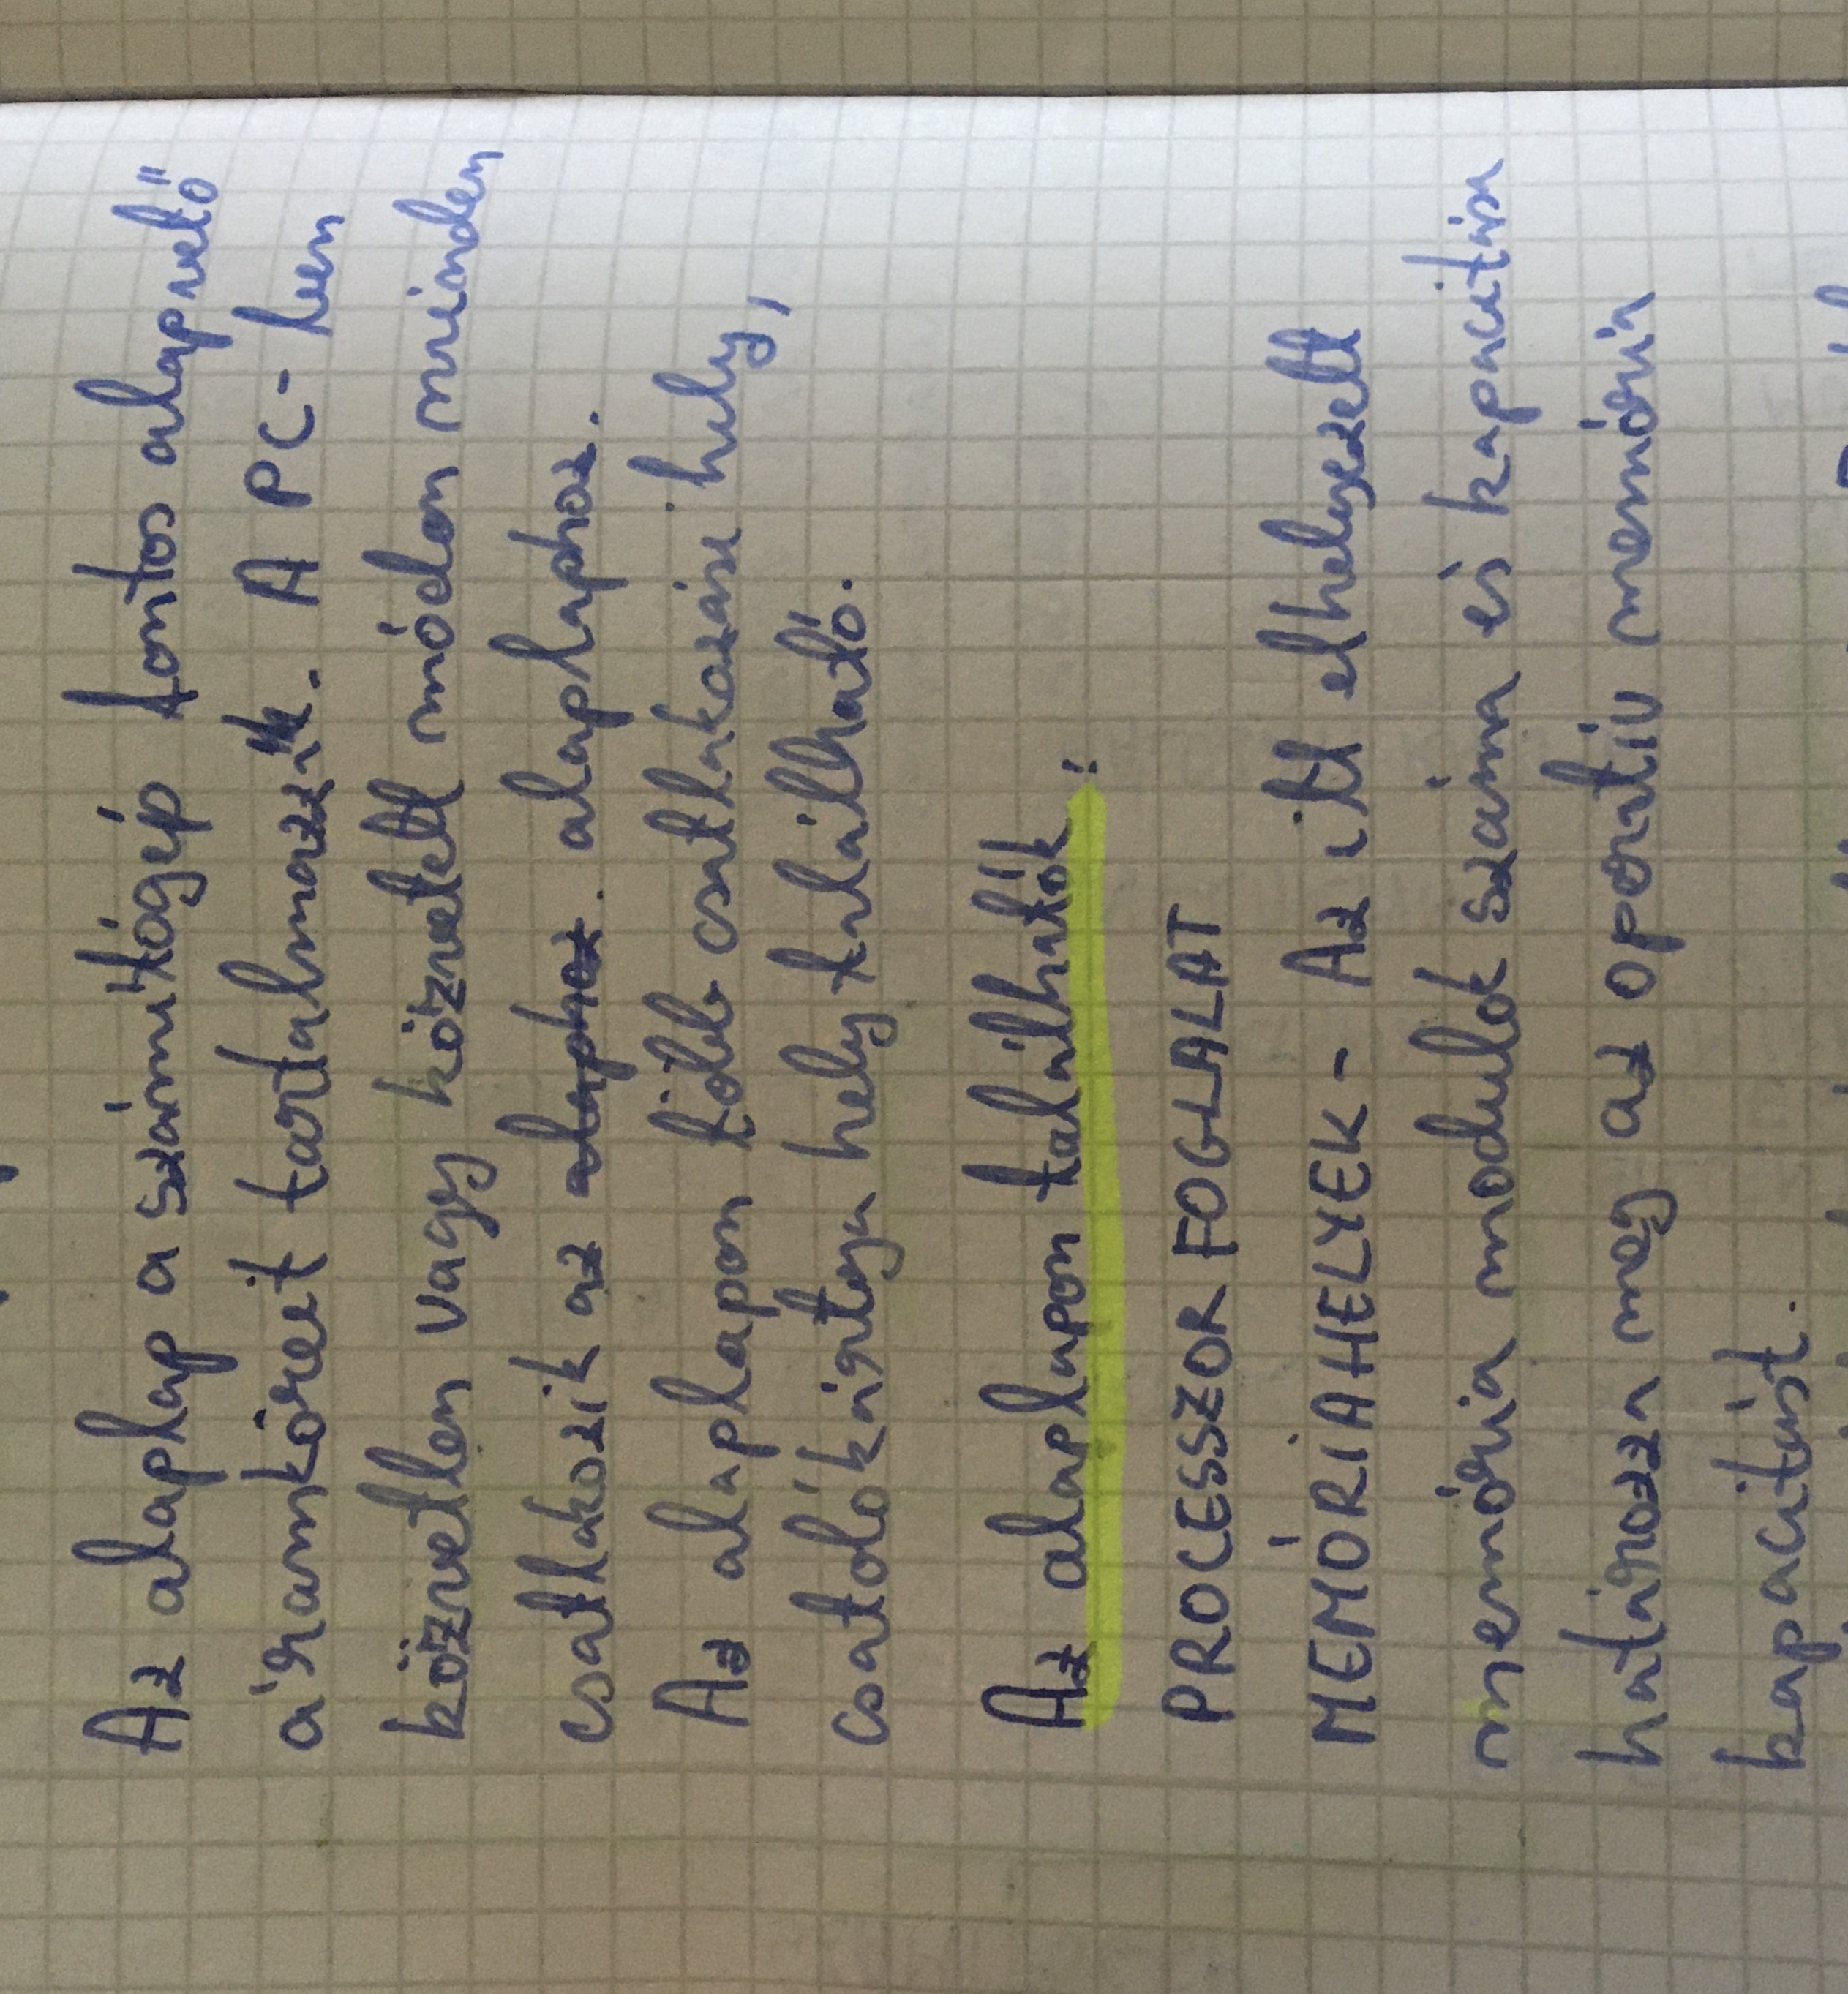 Az alaplap a számítógép fontos alapvető
áramköreit tartalmazza. A PC-ben
közvetlen vagy közvetett módon minden
csatlakozik az alaphoz. alaplaphoz.
Az alaplapon több csatlakozási hely,
csatolókártya hely található.
Az alaplapon találhatók:
PROCESSZOR FOGLALAT
MEMÓRIAHELYEK - Az itt elhelyezett
memória modulok száma és kapacitása
határozza meg az oporatív memória
kapacitást.